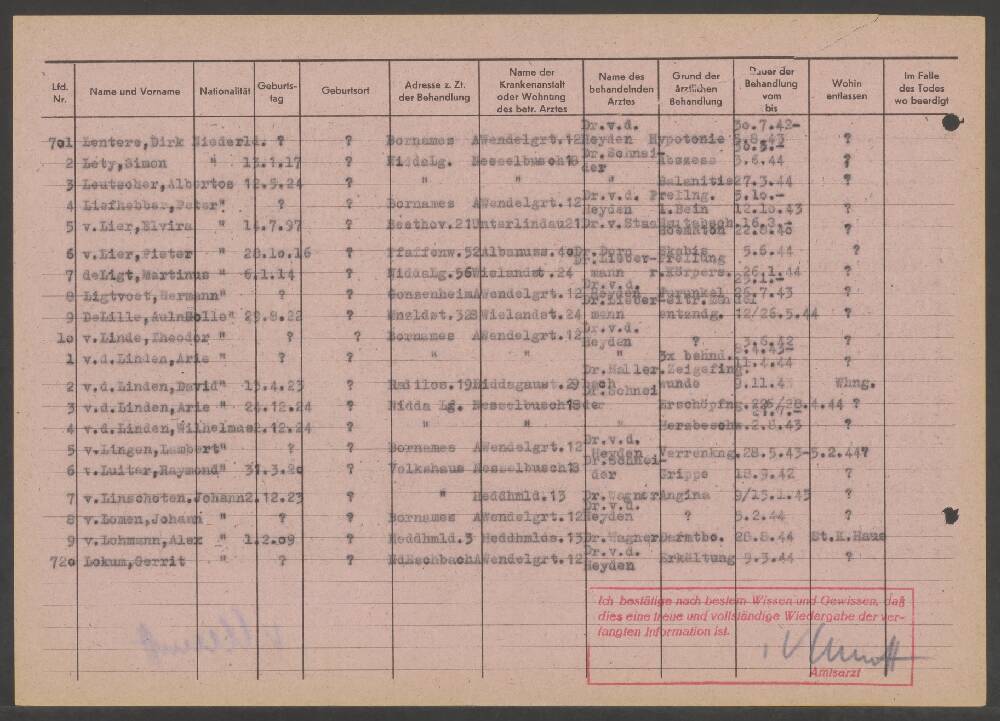 Lfd. Nr. Name und Vorname Nationalität Geburts-tag Geburtsort Adresse z. Zt. der Behandlung Name der Krankenanstalt oder Wohnung des betr. Arztes Name des behandelnden Arztes Grund der ärztlichen Behandlung Dauer der Behandlung vom bis Wohin entlassen Im Falle des Todes wo beerdigt
Dr.v.d. 30.7.42-
701 Lentere,Dirk Niederld. ? ? Bornames AWendelgrt.12 Heyden Hypotonie 5.8.43 ?
Dr.Schnei- 30.5.-
2 Lety,Simon " 13.1.17 ? NiddaLg. Nesselbusch18 der Abszess 3.6.44 ?
3 Leutscher,Albertos 12.9.24 ? " " " Balanitis 27.3.44 ?
Dr.v.d. Prellng. 5.10.-
4 Liefhebber,Peter " ? ? Bornames AWendelgrt.12 Heyden l.Bein 12.10.43 ?
5 v.Lier,Elvira " 14.7.97 ? Beethov.21 Unterlindau21 Dr.v. 16.7.-
22.8.40 ?
6 v.Lier,Pieter " 28.10.16 ? Pfaffenw.52 Albanuss.40 Dr.Dorn Skabis 5.6.44 ?
Dr.Lieber- Prellung
7 deLigt,Martinus " 6.1.14 ? NiddaLg.56 Wielandst.24 mann r.Körpers. 26.1.44 ?
Dr.v.d. 23.11.-
8 Ligtvoet,Hermann " ? ? Gonzenheim AWendelgrt.12 Heyden Furunkel 26.7.43 ?
Dr.Lieber-
9 DeLille, " 29.8.22 ? Wielandst.24 mann entzndg. 12/26.5.44 ?
Dr.v.d.
10 v.Linde,Theodor " ? ? Bornames AWendelgrt.12 Heyden ? 3.6.42 ?
3x behnd. 8.4.43-
1 v.d.Linden,Arie " ? ? " " " 11.4.44 ?
Dr.Haller- Zeigefing.
2 v.d.Linden,David " 13.4.23 ? Radilos.19 Niddagaust.29 bach wunde 9.11.43 Whng.
Dr.Schnei
3 v.d.Linden,Arie " 24.12.24 ? Nidda Lg. Nesselbusch18 der Erschöpfng. 4.44 ?
4 v.d.Linden,Wilhelmus 2.12.24 ? " " " Herzbesch. 2.8.43 ?
Dr.v.d.
5 v.Lingen,Lambert " ? ? Bornames AWendelgrt.12 Heyden Verrenkng. 28.5.43-5.2.44?
Dr.Schnei-
6 v.Luiter,Raymond " 31.3.20 ? Volkshaus Nesselbusch18 der Grippe 18.9.42 ?
7 v.Linschoten,Johann 2.12.23 ? " Heddhmld.13 Dr.Wagner Angina 9/15.1.45 ?
Dr.v.d.
8 v.Lomen,Johann " ? ? Bornames AWendelgrt.12 Heyden ? 5.2.44 ?
9 v.Lohmann,Alex " 1.2.09 ? Heddhmld.3 Heddhmlds.13 Dr.Wagner Darmtbc. 28.8.44 St.K.Haus
Dr.v.d.
720 Lokum,Gerrit " ? ? NdEschbach AWendelgrt.12 Heyden Erkältung 9.3.44 ?
Ich bestätige nach bestem Wissen und Gewissen, daß
dies eine treue und vollständige Wiedergabe der ver-
langten Information ist.
Amtsarzt